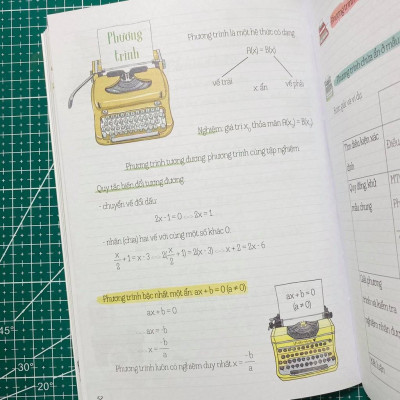 Phương
trình
Phương trình là một hệ thức có dạng
A(x) = B(x)
vế trái
vế phải
x: ẩn
Nghiệm: giá trị x₀ thỏa mãn A(x₀) = B(x₀)
Phương trình tương đương: phương trình cùng tập nghiệm
Quy tắc biến đổi tương đương:
- chuyển vế đổi dấu:
2x - 1 = 0 ..... 2x = 1
- nhân (chia) hai vế với cùng một số khác 0:
x/2 + 1 = x - 3 ..... 2(x/2 + 1) = 2(x - 3) ..... x + 2 = 2x - 6
Phương trình bậc nhất một ẩn: ax + b = 0 (a ≠ 0)
ax + b = 0
ax = -b
x = -b/a
Phương trình luôn có nghiệm duy nhất x = -b/a
ax + b = 0
(a ≠ 0)
Phương trình chứa ẩn ở mẫu
Tìm điều kiện xác
định
Điều
Quy đồng, khử
mẫu chung
MT
Giải phương